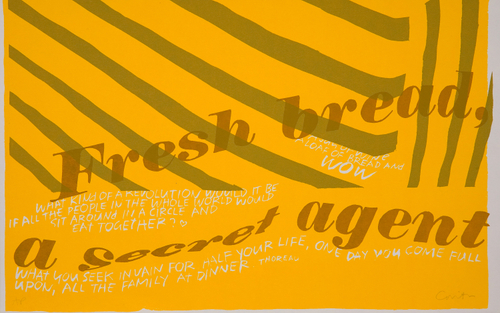 Fresh bread,
A LOAF OF BREAD AND
WOW
WHAT KIND OF A REVOLUTION WOULD IT BE
IF ALL THE PEOPLE IN THE WHOLE WORLD WOULD
SIT AROUND IN A CIRCLE AND
EAT TOGETHER?
a secret agent
WHAT YOU SEEK IN VAIN FOR HALF YOUR LIFE, ONE DAY YOU COME FULL
UPON, ALL THE FAMILY AT DINNER THOREAU